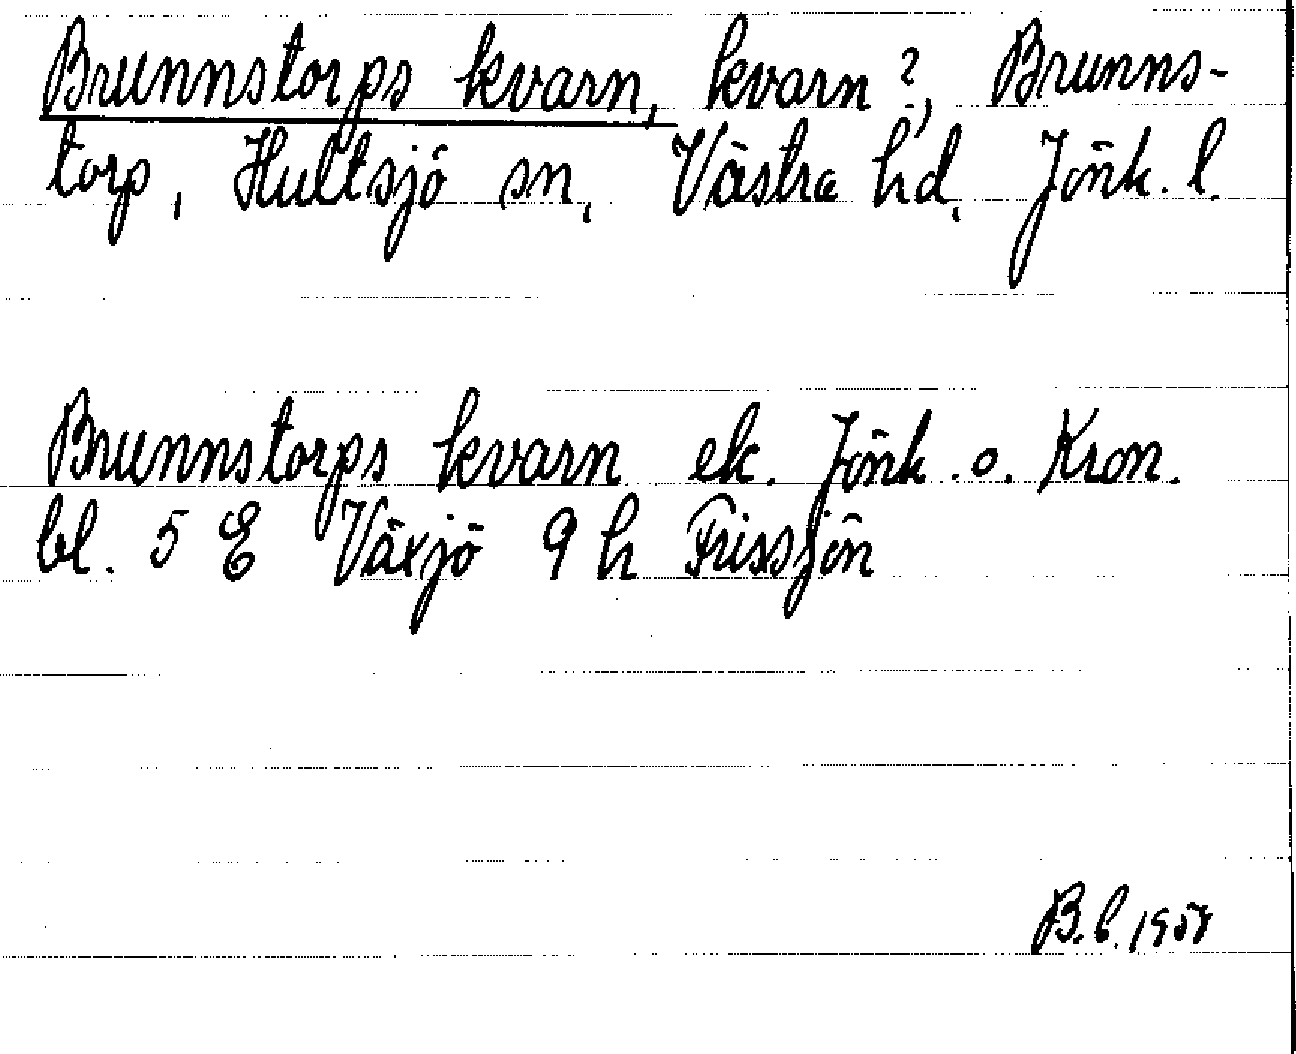 Brunnstorps kvarn, kvarn?, Brunns-
torp, Hultsjö sn, Västra hd, Jönk. l.
Brunnstorps kvarn ek. Jönk. o. Kron.
bl. 5 E Växjö 9 h Frissjön